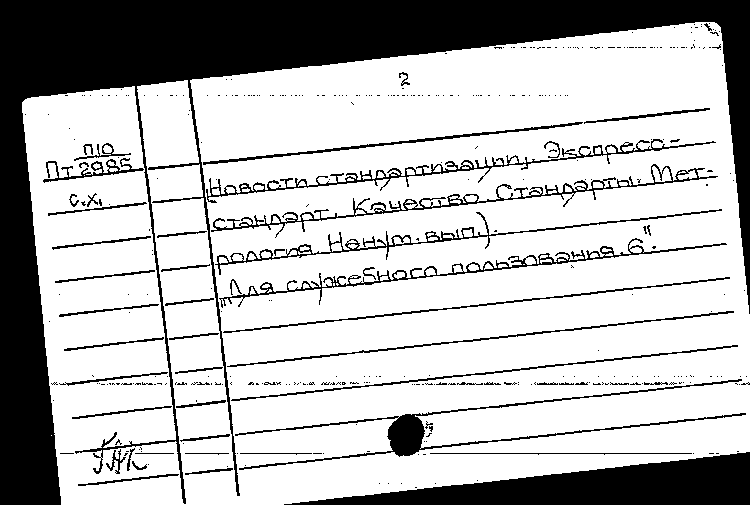 2
П10
Пт 2985
с.х.
(Новости стандартизации. Экспресс-
стандарт. Качество. Стандарты. Мет-
рология. Ненум. вып.).
„Для служебного пользования. б".
ГАК